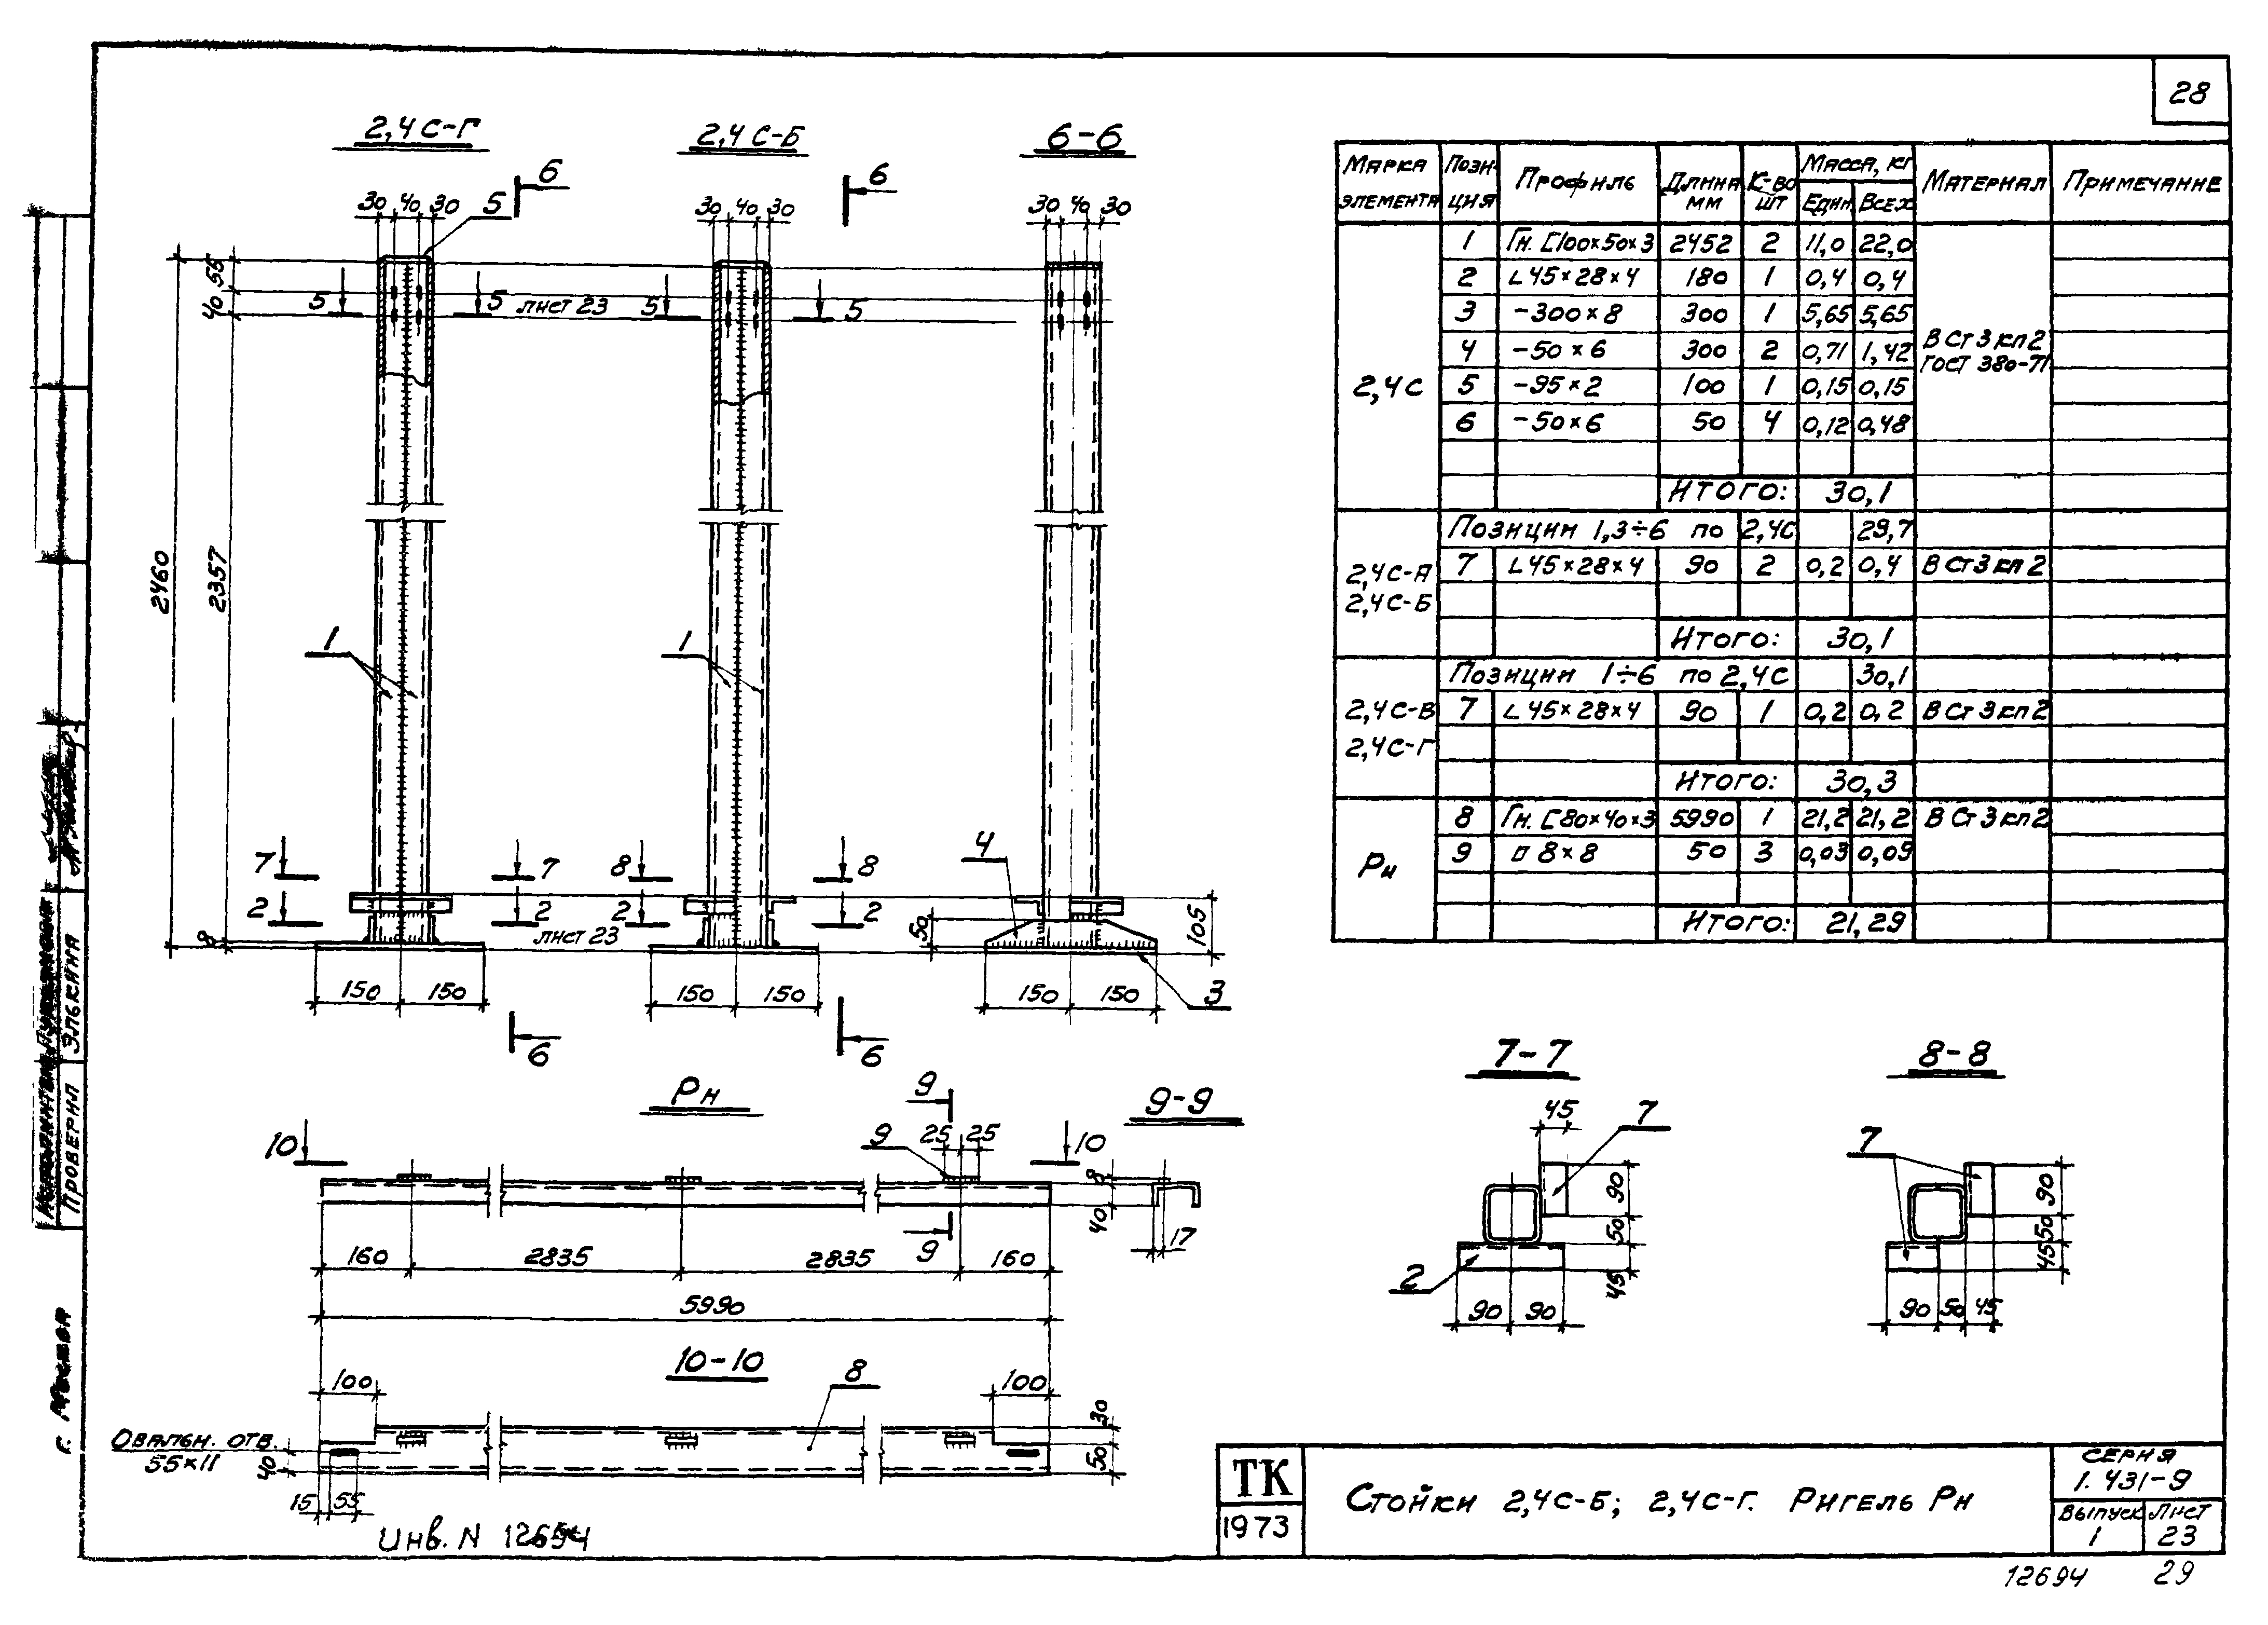 28
2,4 С-Г
2,4 С-Б
6-6
6
6
30 40 30
5
30 40 30
30 40 30
55
40
5 5 лист 23 5 5
2460
2357
1
1
4
7 7 8 8
2 2 2 2
8
лист 23
50
105
150 150
150 150
150 150
3
6
6
Марка элемента
Пози-ция
Профиль
Длина мм
К-во шт
Масса, кг
Един. Всех
Материал
Примечание
2,4С
1 Гн. [100×50×3 2452 2 11,0 22,0
2 L 45×28×4 180 1 0,4 0,4
3 -300×8 300 1 5,65 5,65
4 -50×6 300 2 0,71 1,42
5 -95×2 100 1 0,15 0,15
6 -50×6 50 4 0,12 0,48
В Ст 3 кп 2
ГОСТ 380-71
Итого: 30,1
Позиции 1,3÷6 по 2,4С 29,7
2,4С-А
2,4С-Б
7 L 45×28×4 90 2 0,2 0,4 В Ст 3 кп 2
Итого: 30,1
Позиции 1÷6 по 2,4С 30,1
2,4С-В
2,4С-Г
7 L 45×28×4 90 1 0,2 0,2 В Ст 3 кп 2
Итого: 30,3
Рн
8 Гн. [80×40×3 5990 1 21,2 21,2 В Ст 3 кп 2
9 □ 8×8 50 3 0,03 0,09
Итого: 21,29
Рн
9
9-9
10 9 25 25 10
8
40
17
9
160 2835 2835 160
5990
10-10
8
100
100
30
50
Овальн. отв.
55×11
40
15 55
7-7
45
7
90
50
45
2
90 90
8-8
7
90
50
45
90 50 45
Проверил Элькина
г. Москва
Инв. N 12694
ТК
1973
Стойки 2,4С-Б; 2,4С-Г. Ригель Рн
Серия
1.431-9
Выпуск
1
Лист
23
12694 29